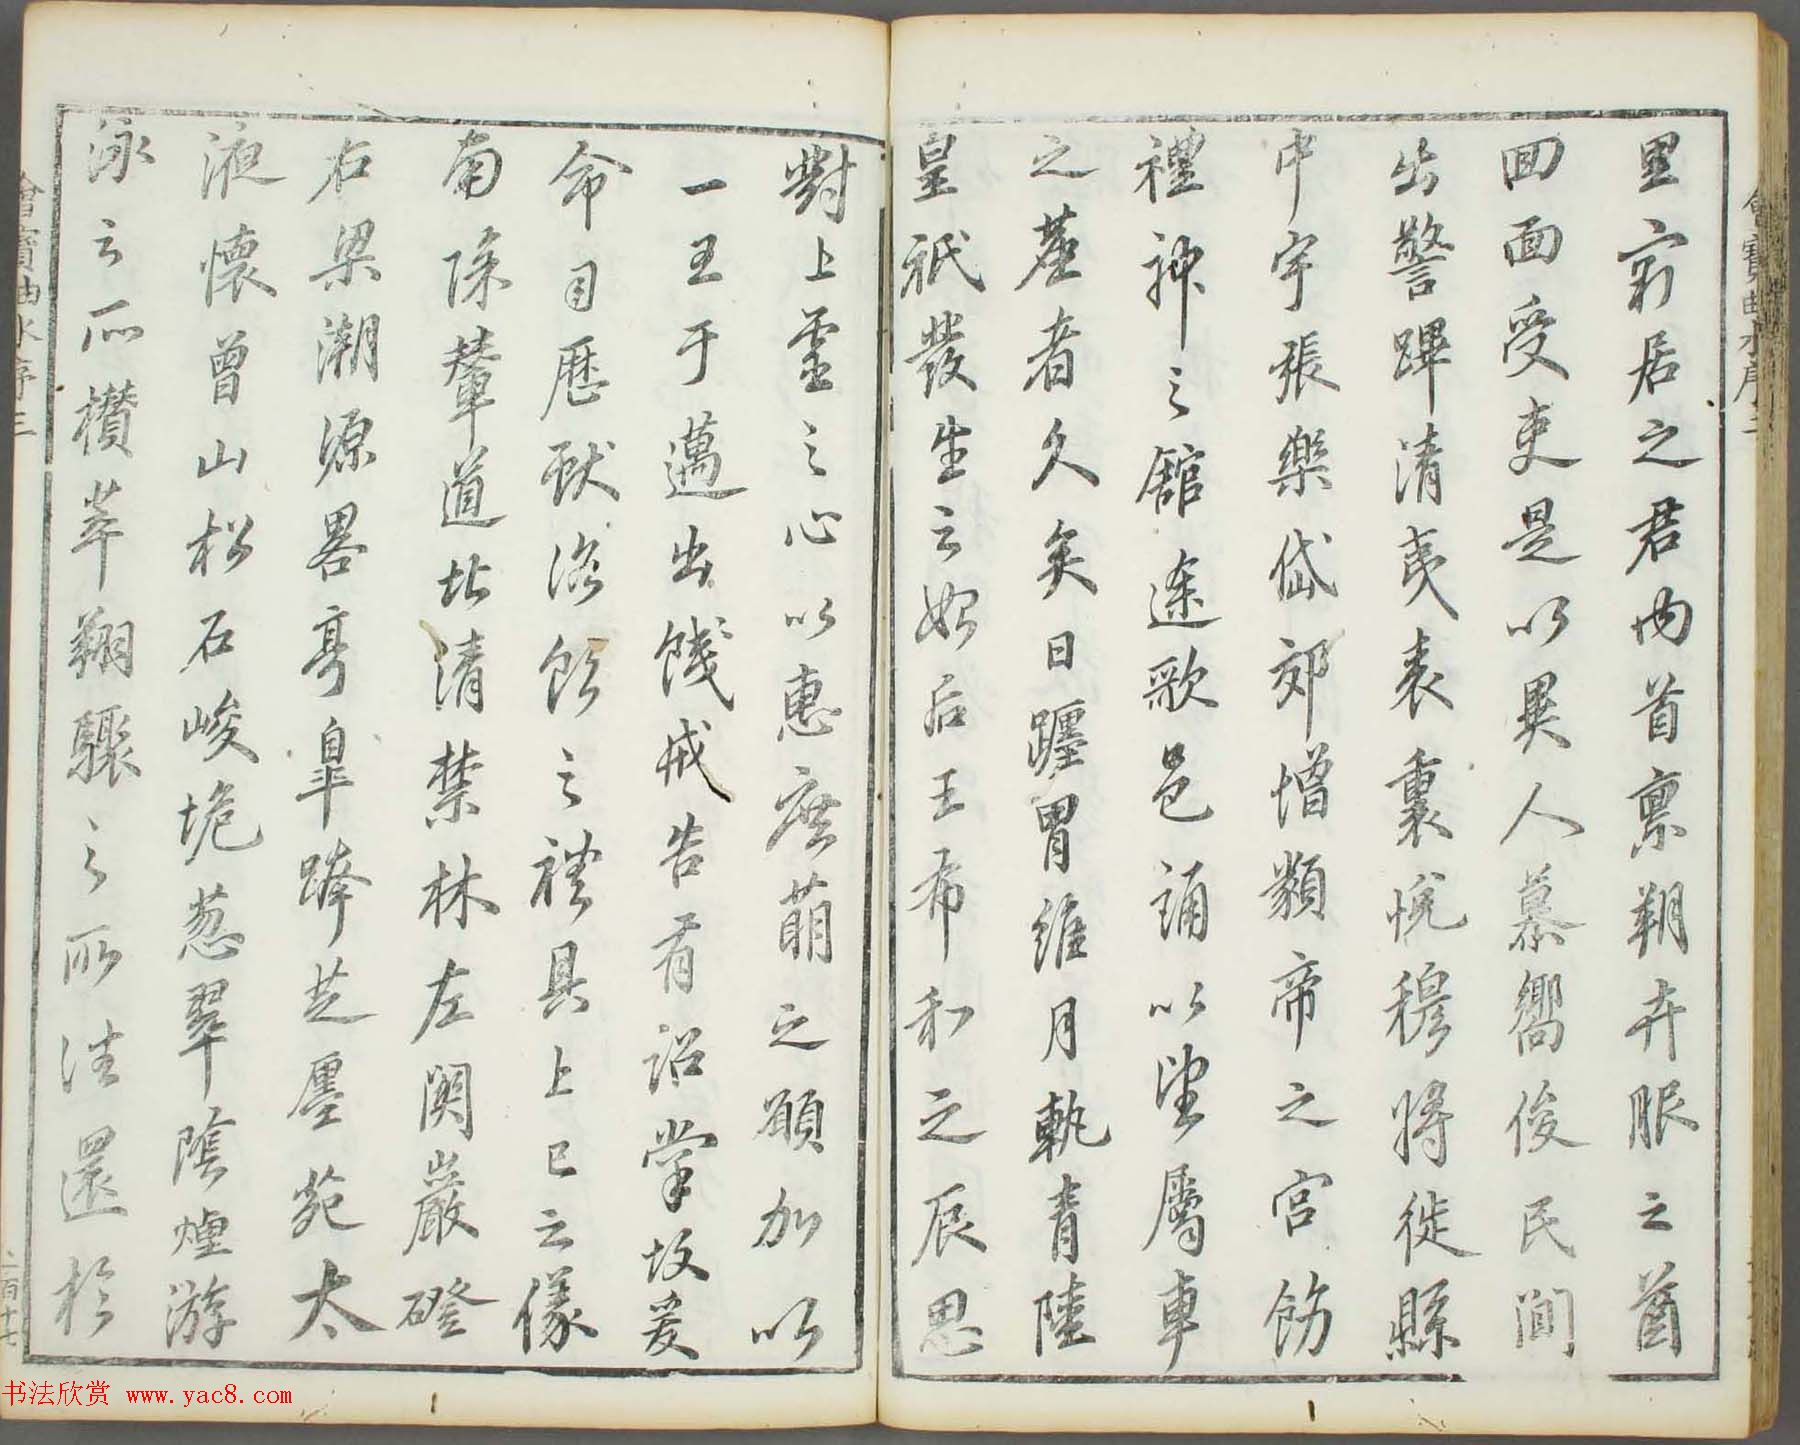 里窮居之君内首稟朔卉服之酋
回面受吏是以異人慕嚮俊民間
出警蹕清夷表裏悅穆將徙縣
中宇張樂岱郊增類帝之宫飭
禮神之館途歌邑誦以望屬車
之塵者久矣日躔胃維月軌青陸
皇祇發生之始后王布和之辰思
對上靈之心以惠庶萌之願加以
一王于邁出餞戒告有詔掌故爰
命司歷獻洛飲之禮具上巳之儀
南除輦道北清禁林左關巖磴
右梁潮源畧亭皐跨芝廛苑太
液懷曾山松石峻垝葱翠陰煙游
泳之所攢萃翔驟之所往還於
二百十七
书法欣赏 www.yac8.com